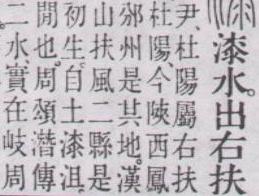 漆水。出右扶
尹、杜陽屬右扶
杜陽、今陝西鳳
邠州是其地。漢
山扶風二縣是
初生。自土漆沮
閒也。周頌潛傳
二水、實在岐周